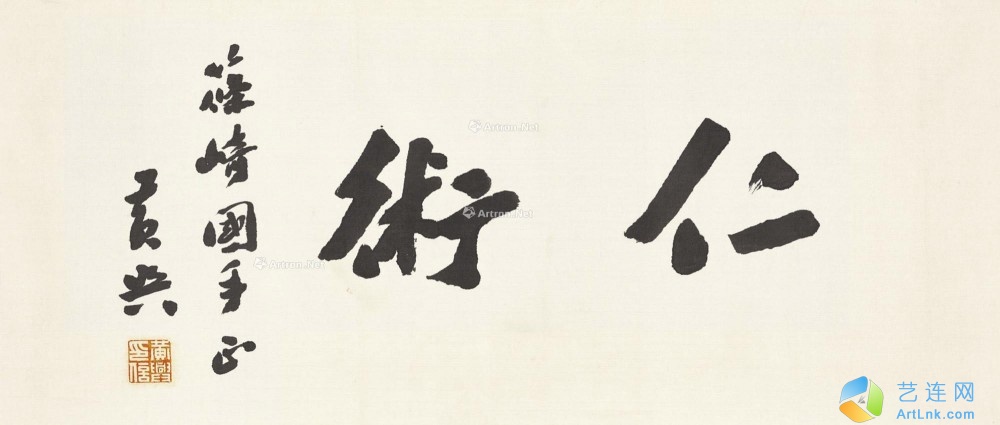 仁術
篠崎國手正
黃興
黃興印信
Artron.Net
Artron.Net
Artron.Net
艺连网
ArtLnk.com